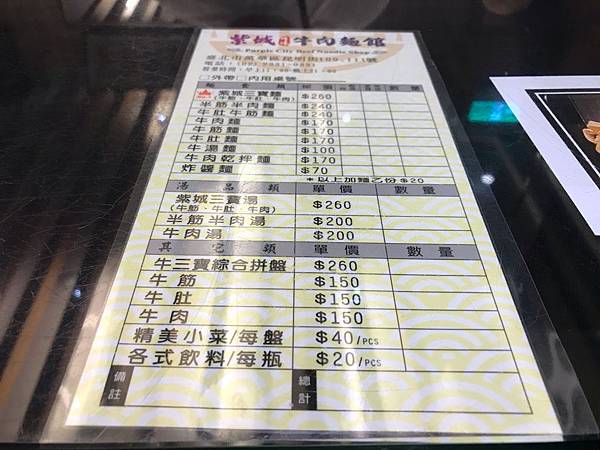 紫城 牛肉麵館
Purple City Beef Noodle Shop
臺北市萬華區昆明街
□外帶 □內用桌號
紫城三寶麵 $260
(牛筋、牛肚、牛肉)
半筋半肉麵 $240
牛肚牛筋麵 $240
牛肉麵 $170
牛筋麵 $170
牛肚麵 $170
牛湯麵 $100
牛肉乾拌麵 $170
炸醬麵 $70
*以上加麵乙份$20
湯品類 單價 數量
紫城三寶湯 $260
(牛筋、牛肚、牛肉)
半筋半肉湯 $200
牛肉湯 $200
其它類 單價 數量
牛三寶綜合拼盤 $260
牛筋 $150
牛肚 $150
牛肉 $150
精美小菜/每盤 $40/PCS
各式飲料/每瓶 $20/PCS
備註 總計